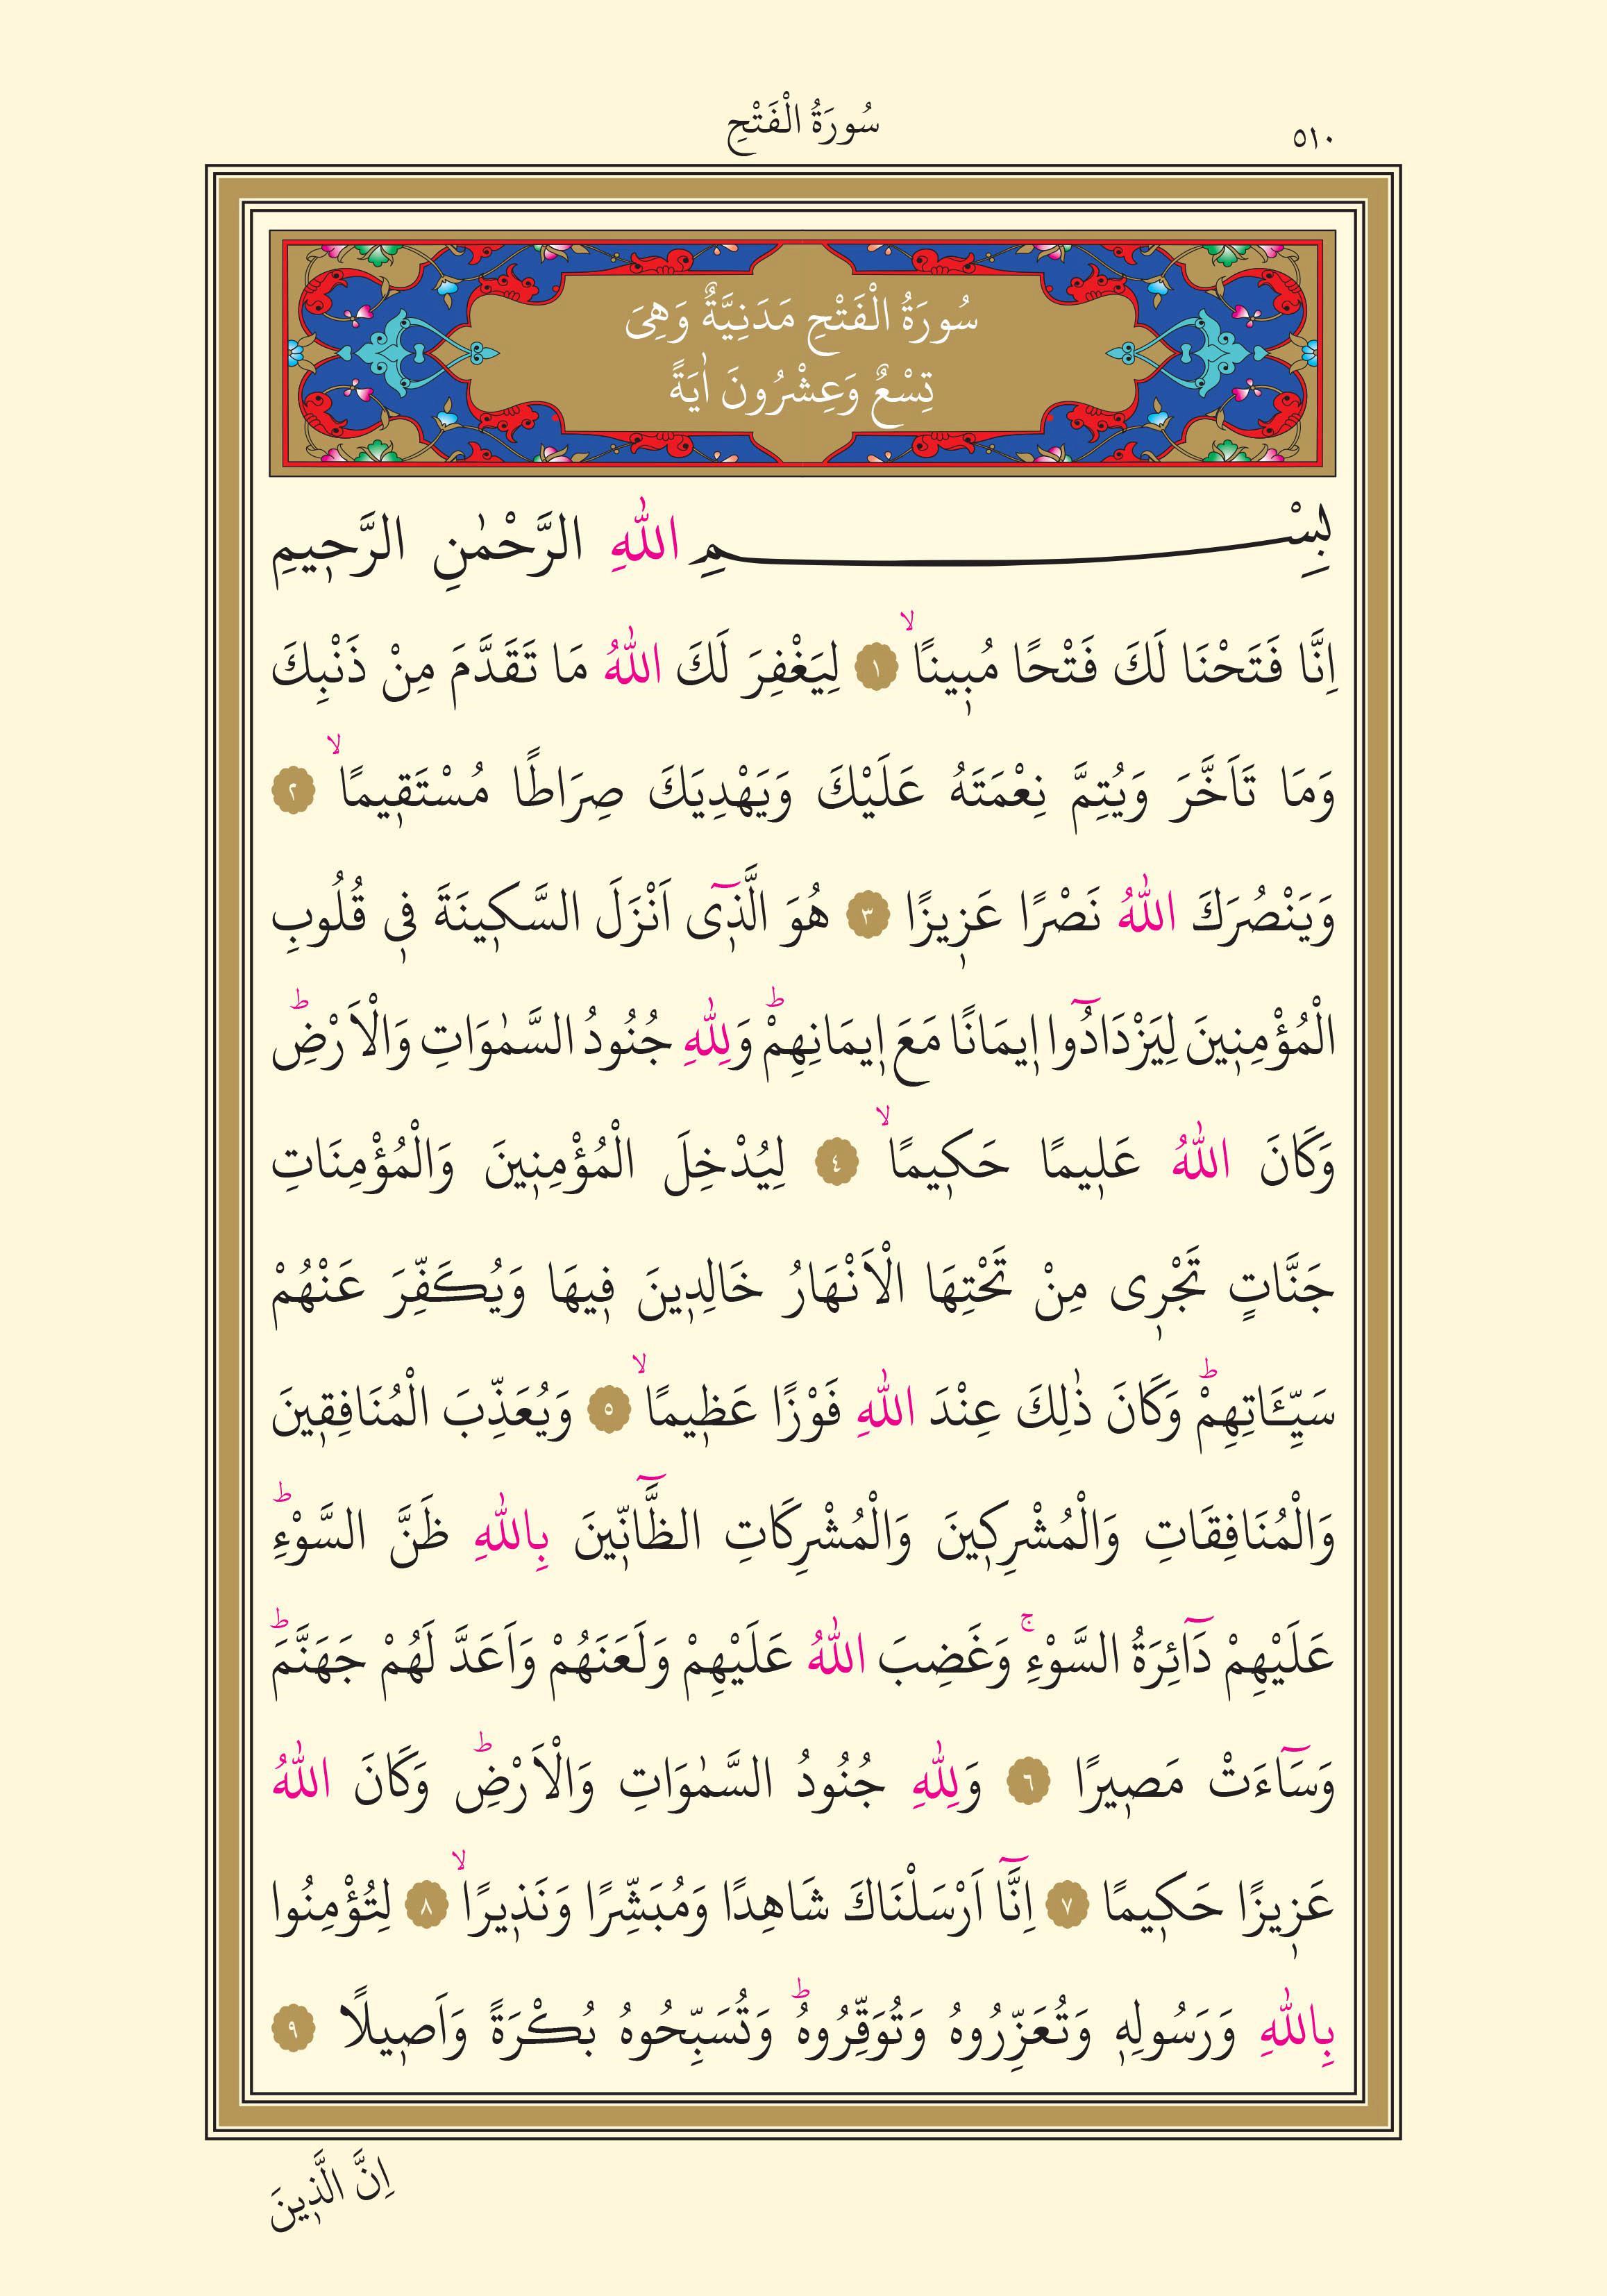 سُورَةُ الْفَتْحِ
٥١٠
سُورَةُ الْفَتْحِ مَدَنِيَّةٌ وَهِىَ
تِسْعٌ وَعِشْرُونَ اٰيَةً
بِسْمِ اللّٰهِ الرَّحْمٰنِ الرَّح۪يمِ
اِنَّا فَتَحْنَا لَكَ فَتْحًا مُب۪ينًاۙ ١ لِيَغْفِرَ لَكَ اللّٰهُ مَا تَقَدَّمَ مِنْ ذَنْبِكَ
وَمَا تَاَخَّرَ وَيُتِمَّ نِعْمَتَهُ عَلَيْكَ وَيَهْدِيَكَ صِرَاطًا مُسْتَق۪يمًاۙ ٢
وَيَنْصُرَكَ اللّٰهُ نَصْرًا عَز۪يزًا ٣ هُوَ الَّذ۪ٓى اَنْزَلَ السَّك۪ينَةَ ف۪ى قُلُوبِ
الْمُؤْمِن۪ينَ لِيَزْدَادُٓوا ا۪يمَانًا مَعَ ا۪يمَانِهِمْۜ وَلِلّٰهِ جُنُودُ السَّمٰوَاتِ وَالْاَرْضِۜ
وَكَانَ اللّٰهُ عَل۪يمًا حَك۪يمًاۙ ٤ لِيُدْخِلَ الْمُؤْمِن۪ينَ وَالْمُؤْمِنَاتِ
جَنَّاتٍ تَجْر۪ى مِنْ تَحْتِهَا الْاَنْهَارُ خَالِد۪ينَ ف۪يهَا وَيُكَفِّرَ عَنْهُمْ
سَيِّـَٔاتِهِمْۜ وَكَانَ ذٰلِكَ عِنْدَ اللّٰهِ فَوْزًا عَظ۪يمًاۙ ٥ وَيُعَذِّبَ الْمُنَافِق۪ينَ
وَالْمُنَافِقَاتِ وَالْمُشْرِك۪ينَ وَالْمُشْرِكَاتِ الظَّٓانّ۪ينَ بِاللّٰهِ ظَنَّ السَّوْءِۜ
عَلَيْهِمْ دَٓائِرَةُ السَّوْءِۚ وَغَضِبَ اللّٰهُ عَلَيْهِمْ وَلَعَنَهُمْ وَاَعَدَّ لَهُمْ جَهَنَّمَۜ
وَسَٓاءَتْ مَص۪يرًا ٦ وَلِلّٰهِ جُنُودُ السَّمٰوَاتِ وَالْاَرْضِۜ وَكَانَ اللّٰهُ
عَز۪يزًا حَك۪يمًا ٧ اِنَّٓا اَرْسَلْنَاكَ شَاهِدًا وَمُبَشِّرًا وَنَذ۪يرًاۙ ٨ لِتُؤْمِنُوا
بِاللّٰهِ وَرَسُولِه۪ وَتُعَزِّرُوهُ وَتُوَقِّرُوهُۜ وَتُسَبِّحُوهُ بُكْرَةً وَاَص۪يلًا ٩
اِنَّ الَّذ۪ينَ